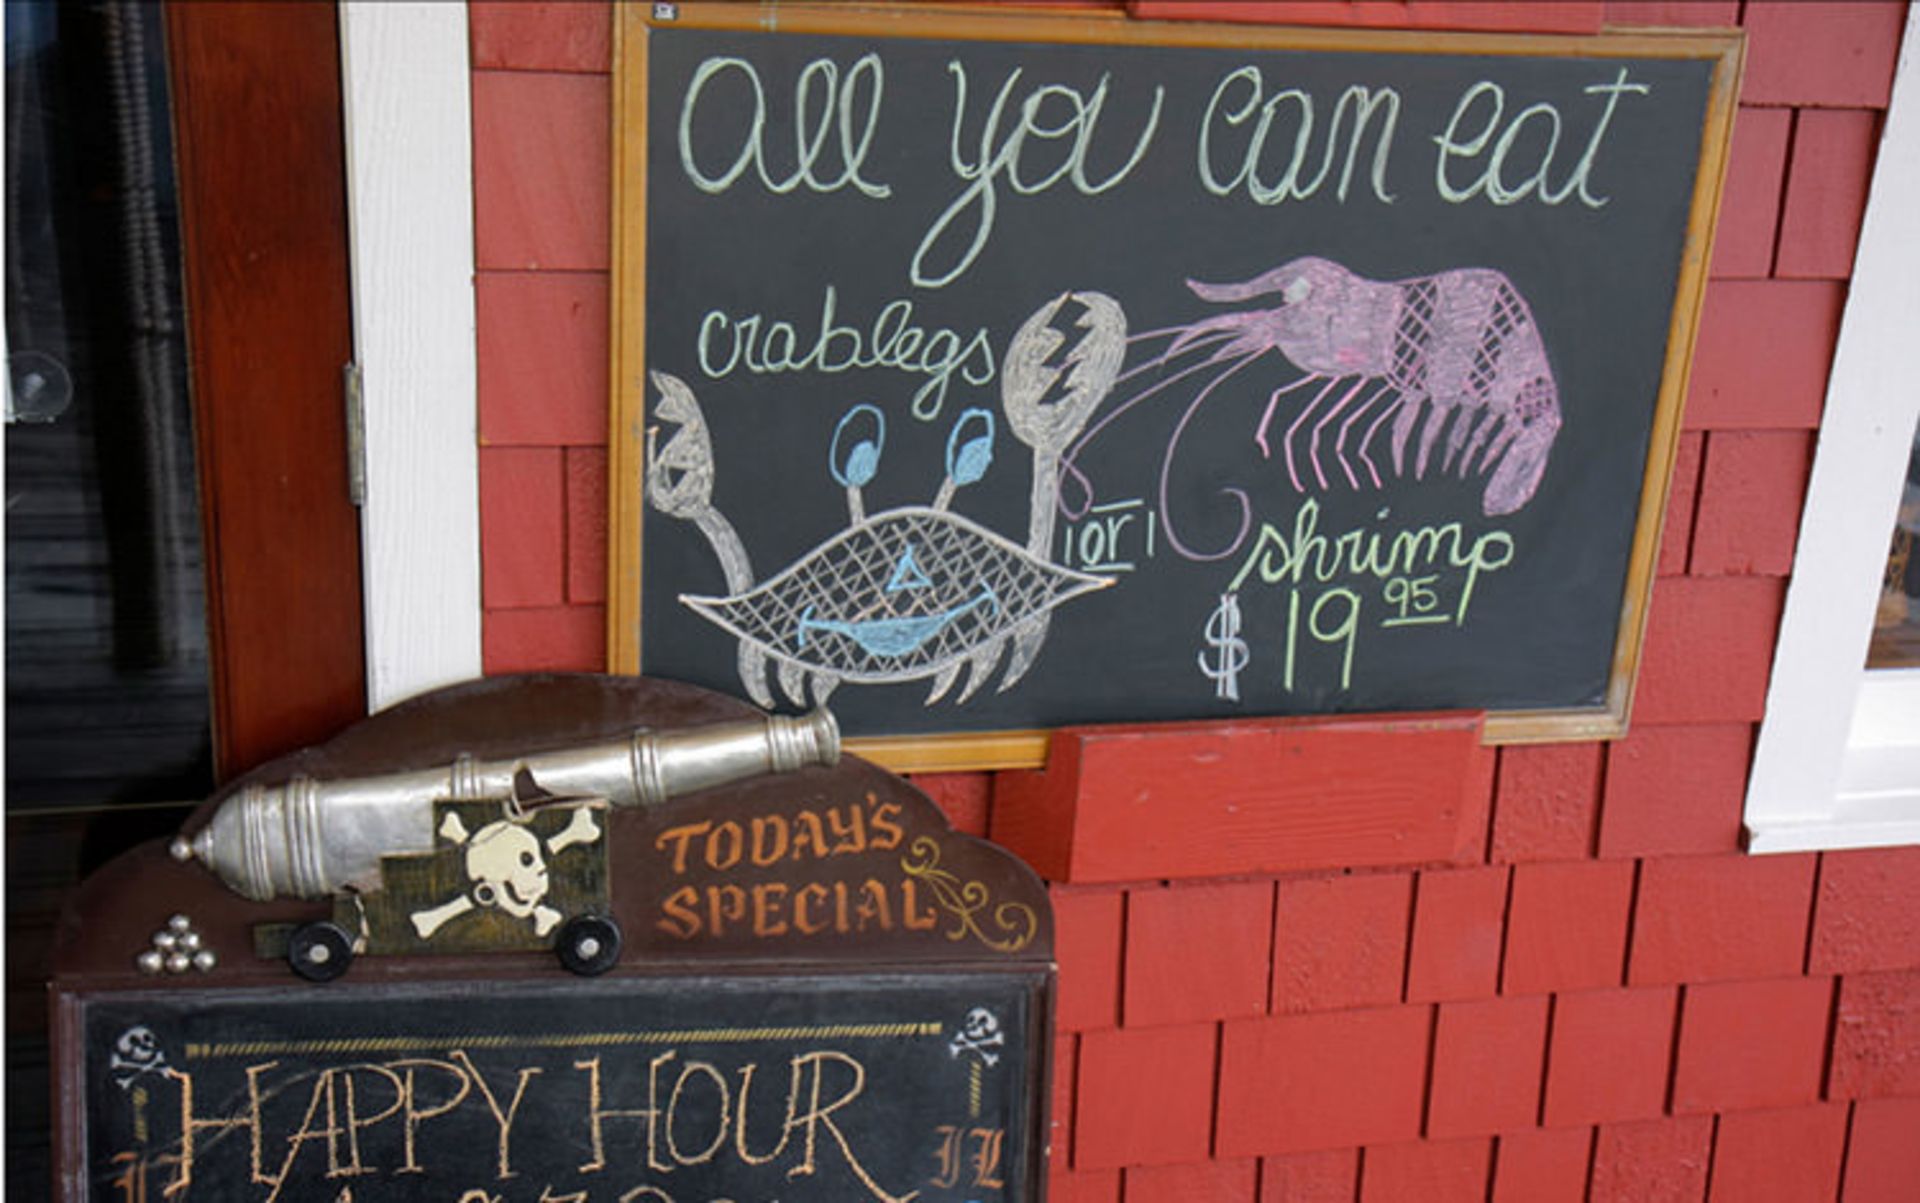 all you can eat
crablegs
or
shrimp
$19 95
TODAY'S
SPECIAL
HAPPY HOUR